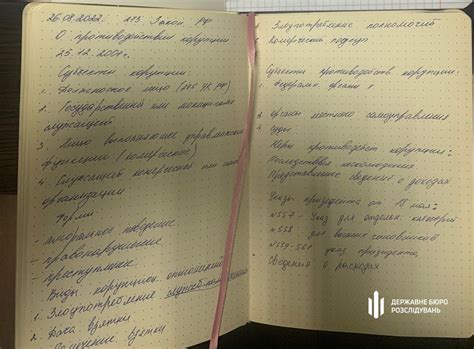 26.08.2022. 273 Закон. РФ
О противодействии коррупции
25.12.2008.
Субъекты коррупции
1. Должностное лицо (285 УК РФ)
2. Государственный или муниципальн
служащий
3. Лицо выполняющее управленческие
функции (коммерческое)
4. Служащий коммерческой или иной
организации
Формы:
- аморальное поведение
- правонарушение
- преступление
Виды коррупцион. отношений
1. Злоупотребление
2. Дача взятки
Получение взятки
Злоупотребление полномочий
Коммерческий подкуп
Субъекты противодейств. коррупции:
1. Федеральн. органы
2. органы местного самоуправления
суды
Меры противодейст коррупции:
Представление сведений о доходах
Указы президента от 18 мая:
N557 - Указ для отдельн. категорий
N558 для
N559-560 указ президента
Сведения о расходах
ДЕРЖАВНЕ БЮРО
РОЗСЛІДУВАНЬ